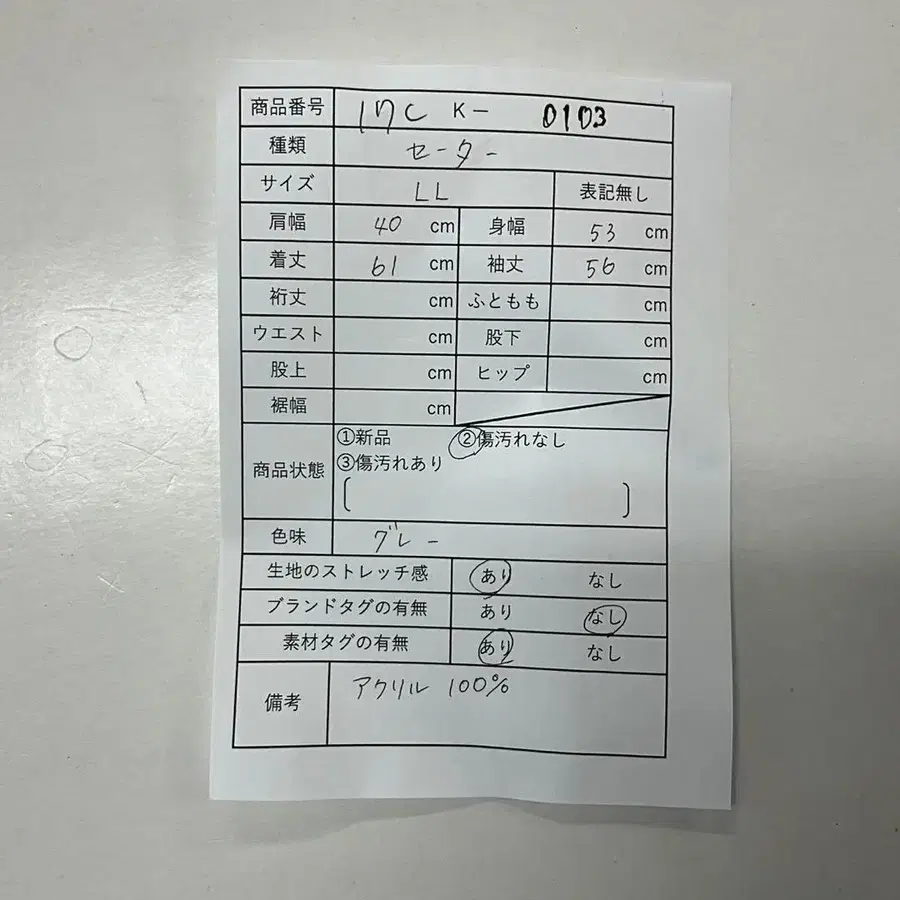 商品番号 17C K- 0103
種類 セーター
サイズ LL 表記無し
肩幅 40 cm 身幅 53 cm
着丈 61 cm 袖丈 56 cm
裄丈 cm ふともも cm
ウエスト cm 股下 cm
股上 cm ヒップ cm
裾幅 cm
商品状態 ①新品 ②傷汚れなし
③傷汚れあり
[ ]
色味 グレー
生地のストレッチ感 あり なし
ブランドタグの有無 あり なし
素材タグの有無 あり なし
備考 アクリル 100%